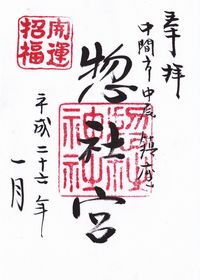 奉拝
中間市中底井野鎮座
惣社宮
平成二十六年
一月
開運
招福